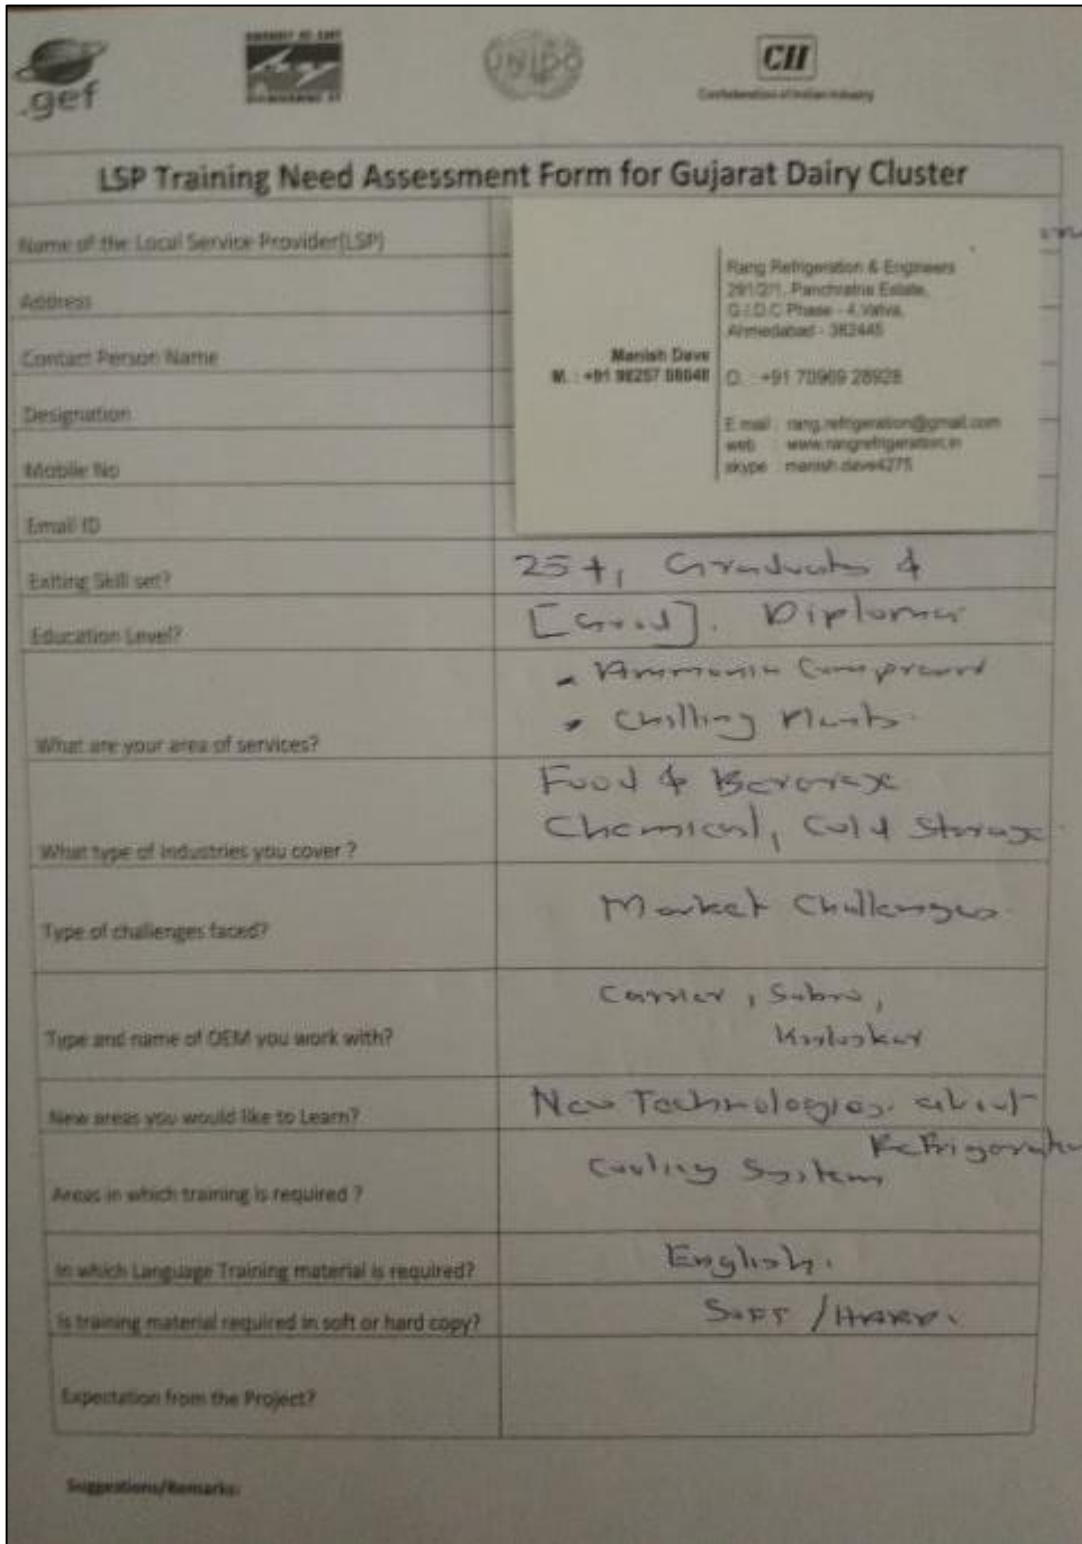 .gef
UNIDO
CII
Confederation of Indian Industry
LSP Training Need Assessment Form for Gujarat Dairy Cluster
Name of the Local Service Provider(LSP)
Address
Contact Person Name
Designation
Mobile No
Email ID
Manish Dave
M. : +91 98257 08048
Rang Refrigeration & Engineers
291/2/1, Panchratna Estate,
G.I.D.C Phase - 4, Vatva,
Ahmedabad - 382445
O. : +91 70969 28928
E mail : rang.refrigeration@gmail.com
web : www.rangrefrigeration.in
skype : manish.dave4275
Exiting Skill set? 25+, Graduates &
Education Level? [Good]. Diploma
What are your area of services?
Ammonia
Chilling Plants.
What type of industries you cover ?
Food & Beverage
Chemical, Cold Storage.
Type of challenges faced? Market Challenges.
Type and name of OEM you work with?
Carrier, Sabro,
Kirloskar
New areas you would like to Learn? New Technologies. about
Refrigeration
Areas in which training is required ? Cooling System
In which Language Training material is required? English.
Is training material required in soft or hard copy? SOFT / HARD.
Expectation from the Project?
Suggestions/Remarks: